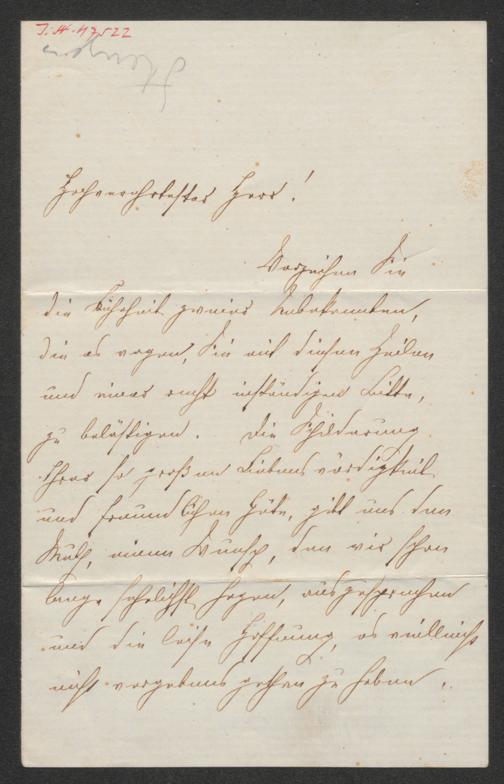 I.N. 47522
Hochverehrtester Herr!
Verzeihen Sie
die Kühnheit zweier Unbekannten,
die es wagen, Sie mit diesen Zeilen
und einer recht inständigen Bitte,
zu belästigen. Die Schilderung
Ihrer so großen Liebenswürdigkeit
und freundlichen Güte, gibt uns den
Muth, einen Wunsch, den wir schon
lange sehnlichst hegen, auszusprechen
und die leise Hoffnung, es vielleicht
nicht vergebens gethan zu haben.